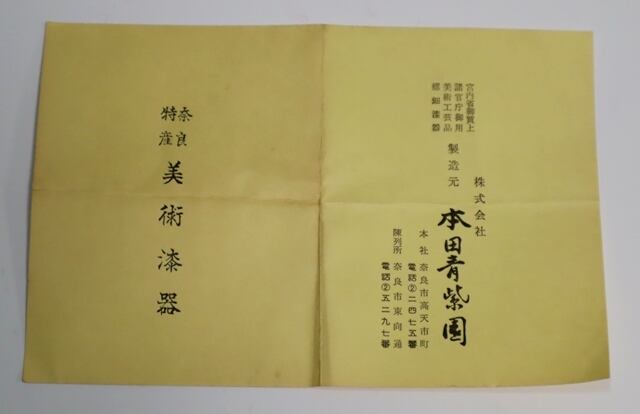 宮内省御買上
諸官庁御用
美術工芸品
螺鈿漆器
製造元
株式会社
本田青紫園
本社 奈良市高天市町
電話②二四七五番
陳列所 奈良市東向通
電話②五二九七番
奈良
特産
美術漆器